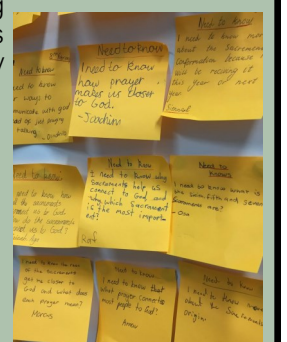 g
s
y
Need to know
I need to know
how prayer
makes us closer
to God.
- Joachim
Need to Know
I need to know more
about the Sacrament
Confirmation because I
will be receiving it
this year or next
year
Need to know
ways to
communicate with god
just praying
Need to know
I need to know how
the sacraments
connect us to God
how do the sacraments
us to God?
Need to Know
I need to Know why
Sacraments help us
connect to God and
why which Sacrament
is the most import
ent?
Raf
Need to
Know
I need to know what is
the Sixth and Seven
Sacraments are?
- Osa
I need to know
the Sacraments
get me closer to
God and what does
each prayer mean?
Marcus
Need to know
I need to know that
what prayer connectes
most people to God?
Need to know
I need to know more
about the Sacraments
origin